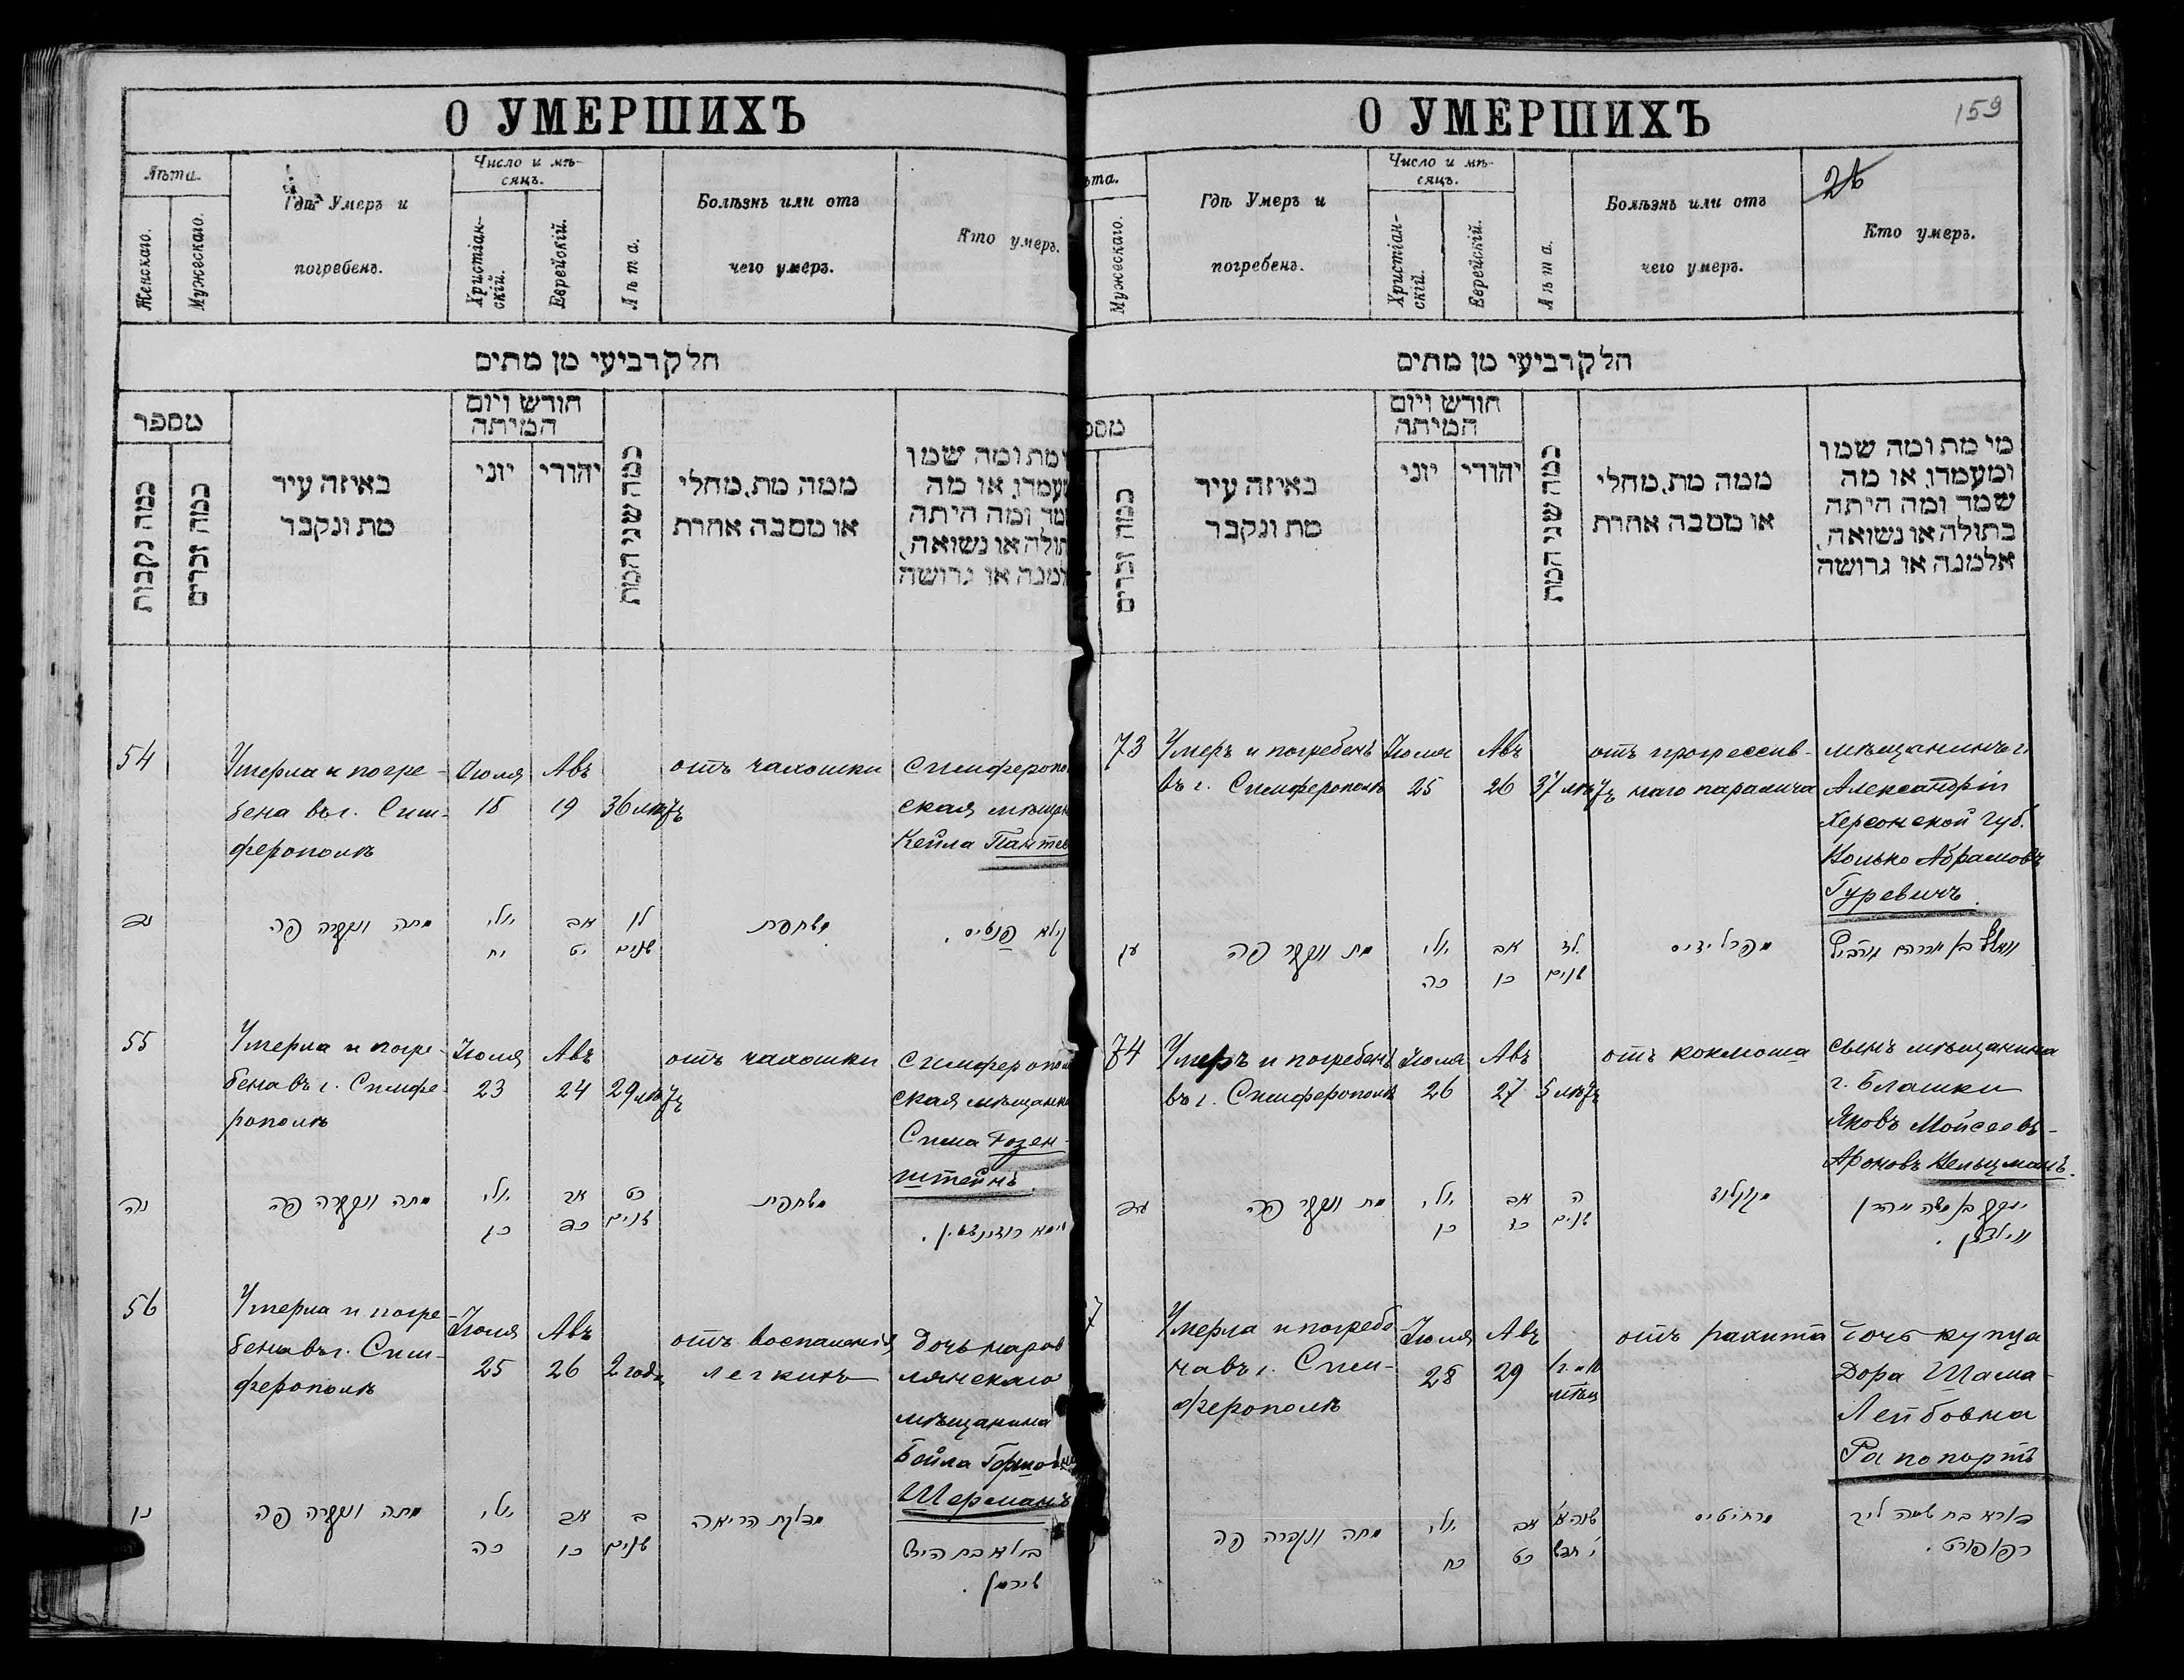 О УМЕРШИХЪ
Лѣта.
Женскаго.
Мужескаго.
Гдѣ Умеръ и
погребенъ.
Число и мѣ-
сяцъ.
Христіан-
скій.
Еврейскій.
Лѣта.
Болѣзнь или отъ
чего умеръ.
Кто умеръ.
חלק רביעי מן מתים
מספר
כמה נקבות
כמה זכרים
באיזה עיר
מת ונקבר
חודש ויום
המיתה
יוני
יהודי
כמה שני המת
ממה מת, מחלי
או מסבה אחרת
מת ומה שמו
או מה
ומה היתה
או נשואה,
או גרושה
54
Умерла и погре-
бена въ г. Сим-
ферополѣ
Іюля
18
Авъ
19
36 лѣтъ
отъ чахотки
Симферопо
ская мѣщан
Кейла Пантел
נד
מתה ונקברה פה
יולי
יח
אב
יט
לו
שנים
משחפת
קילא פנטיס.
55
Умерла и погре-
бена въ г. Симфе-
рополѣ
Іюля
23
Авъ
24
29 лѣтъ
отъ чахотки
Симферопол
ская мѣщанк
Сима Розен-
штейнъ.
נה
מתה ונקברה פה
יולי
כג
אב
כד
כט
שנים
משחפת
סימא רוזינשטין.
56
Умерла и погре-
бена въ г. Сим-
ферополѣ
Іюля
25
Авъ
26
2 года
отъ воспаленія
легкихъ
Дочь наров
лянскаго
мѣщанина
Бейла
Шерманъ
נו
מתה ונקברה פה
יולי
כה
אב
כו
ב
שנים
מדלקת הריאה
בילא בת הירש
שירמן.
О УМЕРШИХЪ
159
ѣта.
Мужескаго.
Гдѣ Умеръ и
погребенъ.
Число и мѣ-
сяцъ.
Христіан-
скій.
Еврейскій.
Лѣта.
Болѣзнь или отъ
чего умеръ.
Кто умеръ.
חלק רביעי מן מתים
מספ
כמה זכרים
באיזה עיר
מת ונקבר
חודש ויום
המיתה
יוני
יהודי
כמה שני המת
ממה מת, מחלי
או מסבה אחרת
מי מת ומה שמו
ומעמדו, או מה
שמה ומה היתה
בתולה או נשואה,
אלמנה או גרושה
73
Умеръ и погребенъ
въ г. Симферополѣ
Іюля
25
Авъ
26
37 лѣтъ
отъ прогрессив-
наго паралича
мѣщанинъ г.
Александріи
Херсонской губ.
Абрамовъ
Гуревичъ.
עג
מת ונקבר פה
יולי
כה
אב
כו
שנים
מפרליזיס
בן אברהם
74
Умеръ и погребенъ
въ г. Симферополѣ
Іюля
26
Авъ
27
5 лѣтъ
отъ коклюша
сынъ мѣщанина
г. Блашки
Яковъ Мойсеевъ-
Ароновъ Вельцманъ.
עד
מת ונקבר פה
יולי
כו
אב
כז
ה
שנים
יעקב בן משה אהרן
וועלצמן.
7
Умерла и погребе
на въ г. Сим-
ферополѣ
Іюля
28
Авъ
29
1 г. и 10
мѣсц
отъ рахита
дочь купца
Дора Шама-
Лейбовна
Рапопортъ
מתה ונקברה פה
יולי
כח
אב
כט
שנה א׳
י׳ חדש
מרחיטיס
דורא בת שמה ליב
רפופורט.